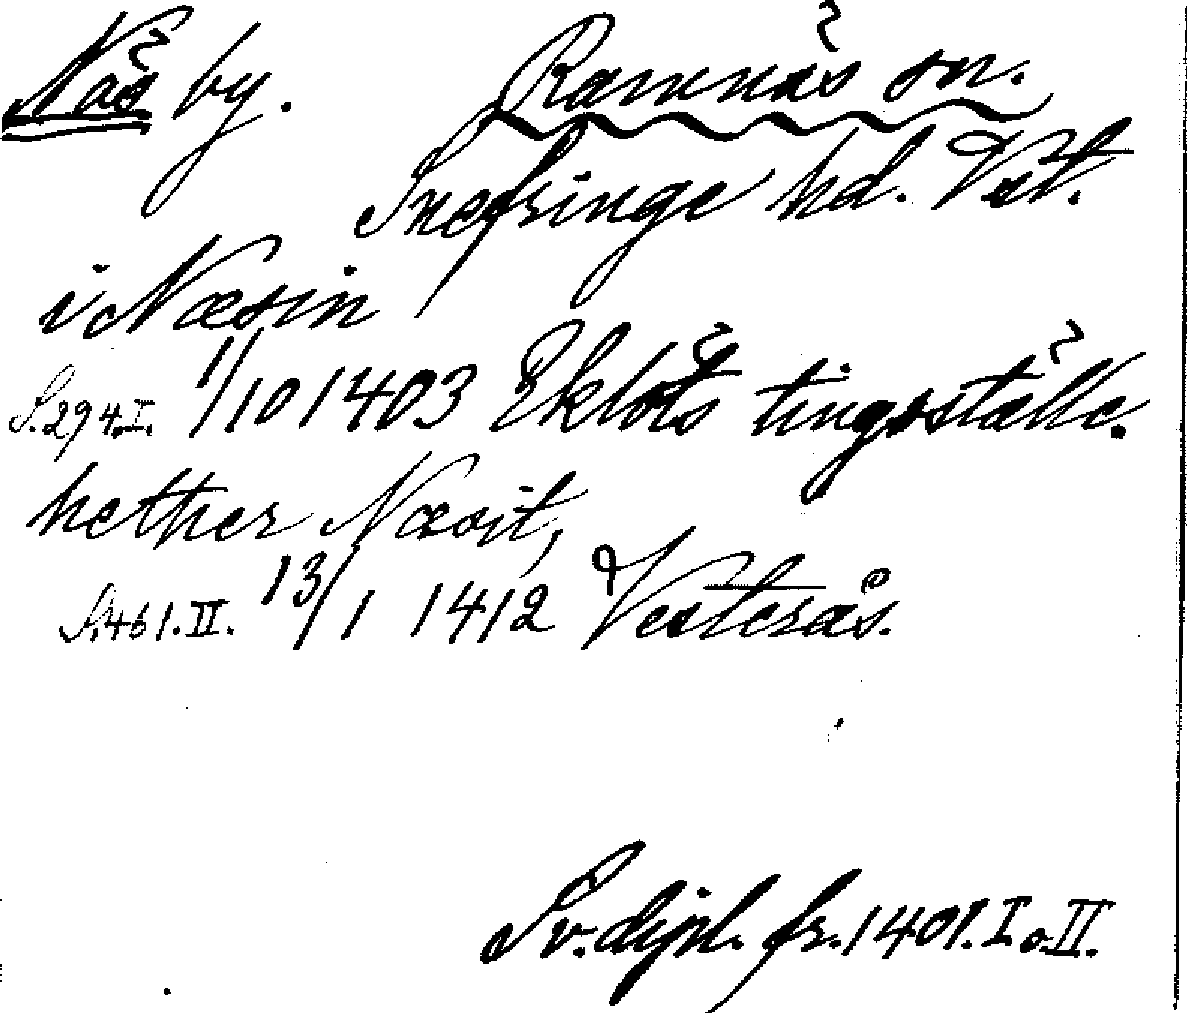 Näs by. Ramnäs sn.
Snefringe hd. Vst.
i Næsin
S. 294. I. 1/10 1403 Eklöts tingsställe.
hether Næsit,
S. 461. II. 13/1 1412 Vesterås.
Sv. dipl. fr. 1401. I. o. II.